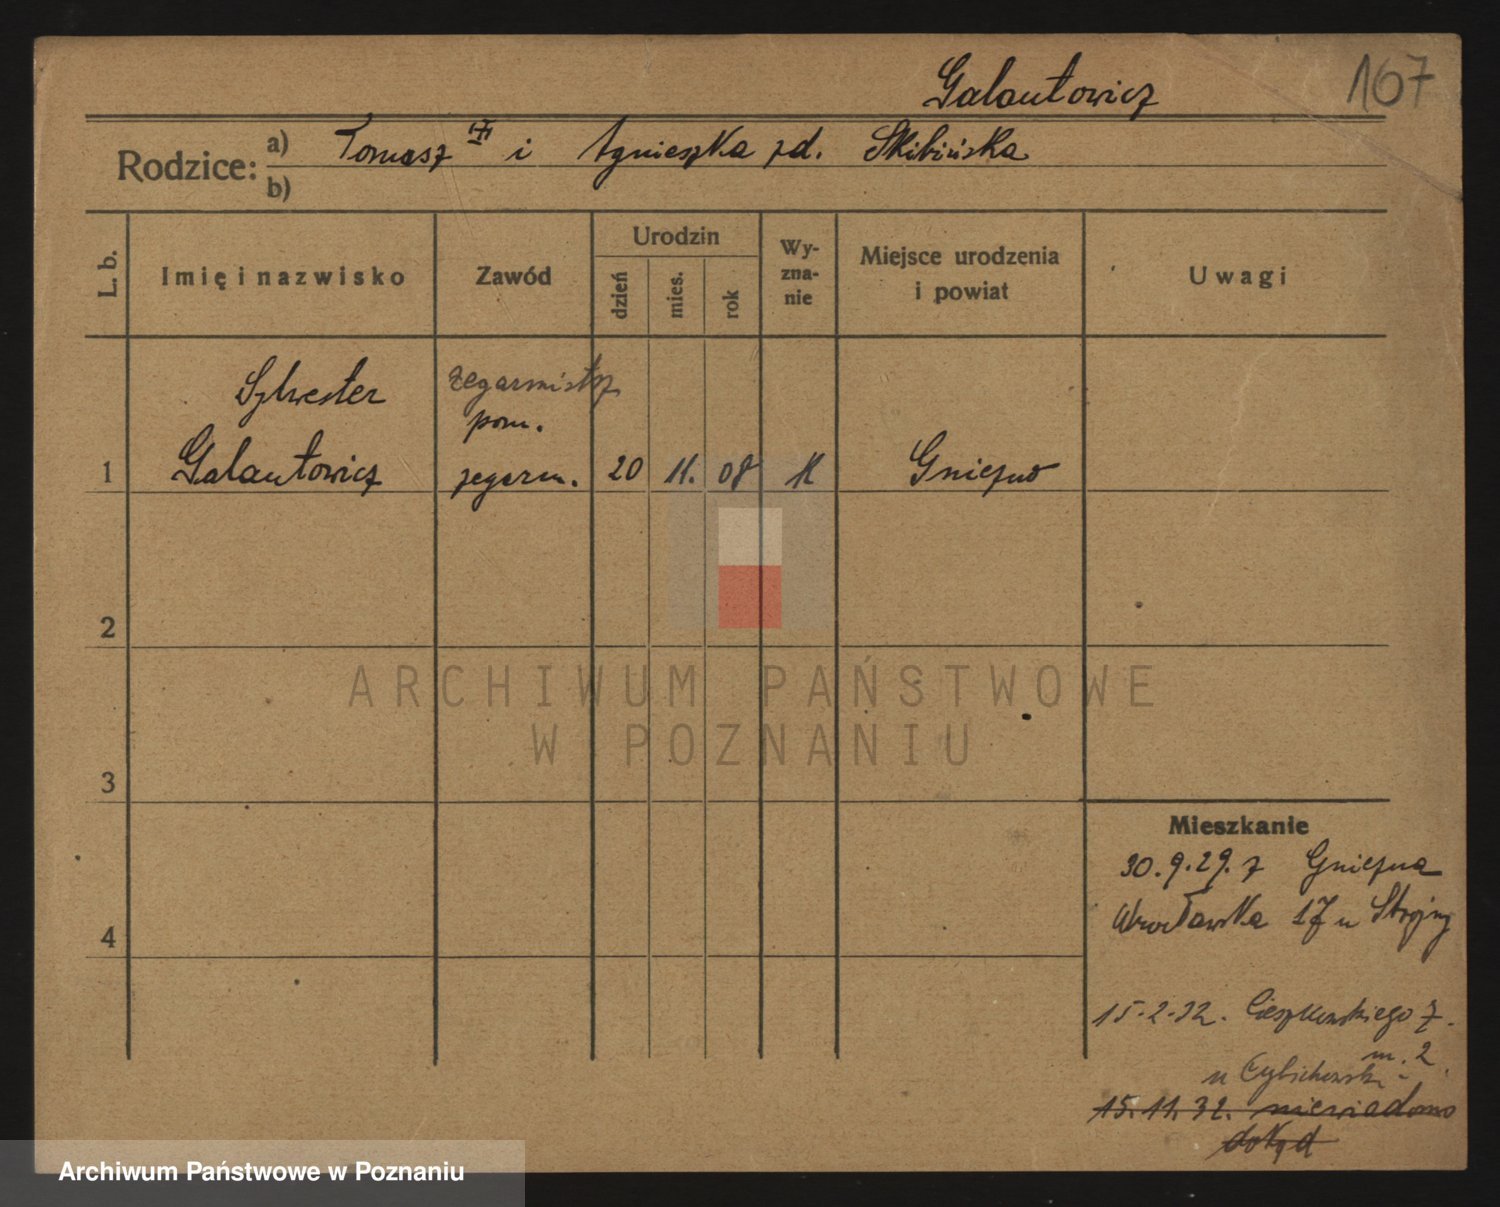 Galantowicz 167
Rodzice: a) Tomasz i Agnieszka zd. Skibińska
b)
L. b. Imię i nazwisko Zawód Urodzin dzień mies. rok Wy-zna-nie Miejsce urodzenia i powiat Uwagi
Sylwester zegarmistrz
pom.
1 Galantowicz zegarm. 20 11. 08 K Gniezno
2
ARCHIWUM PAŃSTWOWE
W POZNANIU
3
Mieszkanie
30.9.29. z Gniezna
4 Wrocławska 17 u Strojny
15.2.32. Cieszkowskiego 7.
m. 2
u Cybichowski
15.11.32. niewiadomo
dokąd
Archiwum Państwowe w Poznaniu